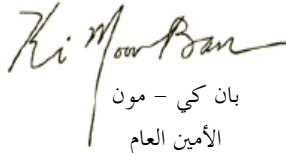 Ki Moon Ban
بان كي - مون
الأمين العام